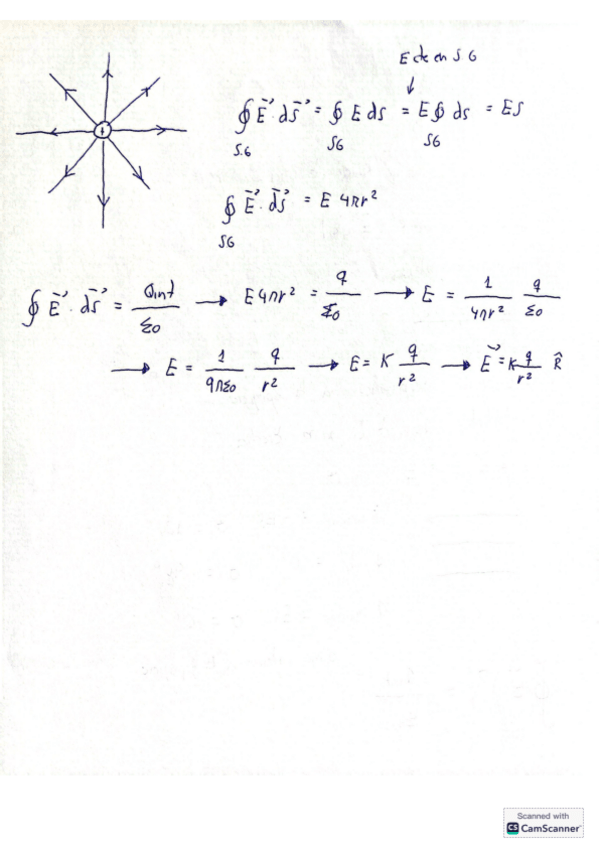 E cte en SG
∮ E⃗ · ds⃗ = ∮ E ds = E ∮ ds = ES
SG SG SG
∮ E⃗ · ds⃗ = E 4πr²
SG
∮ E⃗ · ds⃗ = Qint/ε₀ → E4πr² = q/ε₀ → E = 1/4πr² q/ε₀
→ E = 1/4πε₀ q/r² → E = K q/r² → E⃗ = K q/r² R̂
Scanned with
CS CamScanner